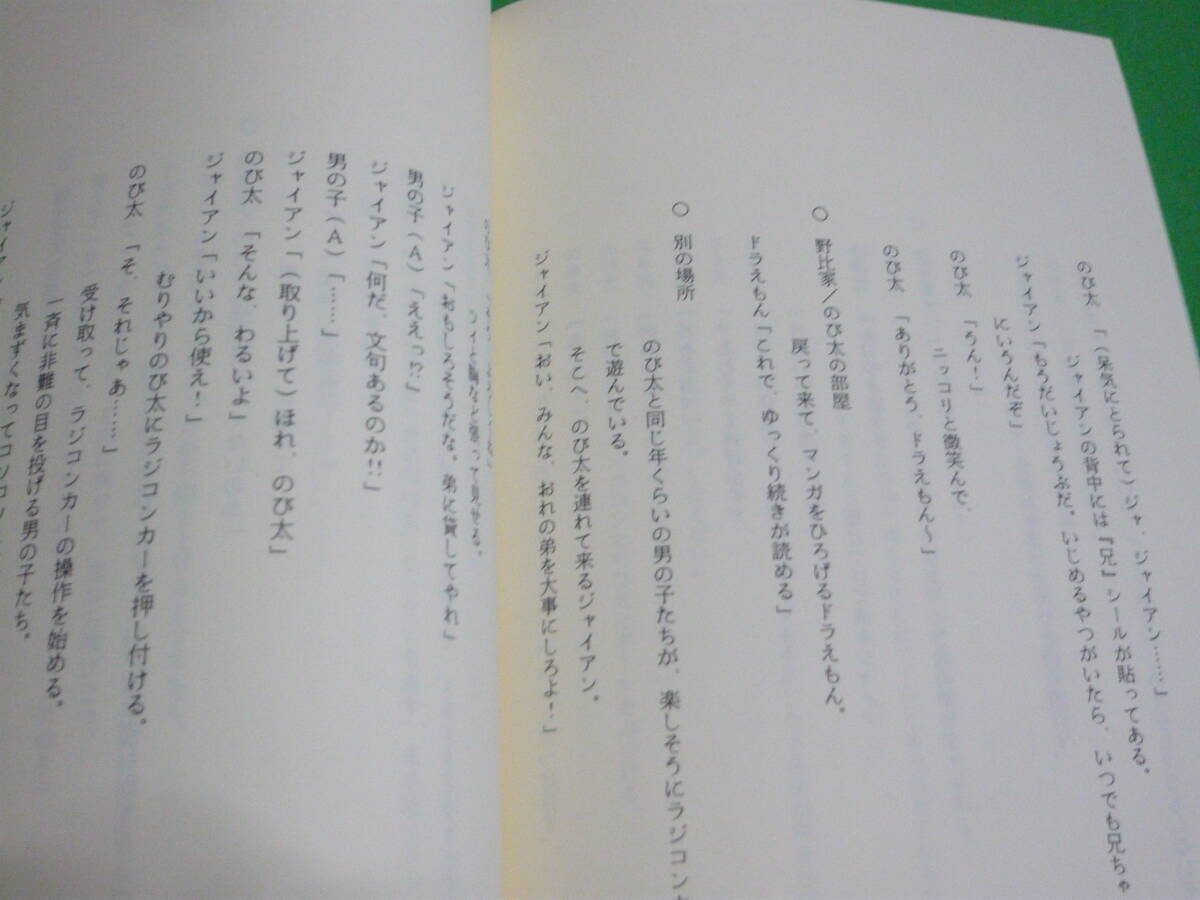 のび太　「（呆気にとられて）ジャ、ジャイアン……」
ジャイアンの背中には『兄』シールが貼ってある。
ジャイアン「もうだいじょうぶだ。いじめるやつがいたら、いつでも兄ちゃ
にいうんだぞ」
のび太　「うん！」
ニッコリと微笑んで、
のび太　「ありがとう、ドラえもん〜」
○　野比家／のび太の部屋
戻って来て、マンガをひろげるドラえもん。
ドラえもん「これで、ゆっくり続きが読める」
○　別の場所
のび太と同じ年くらいの男の子たちが、楽しそうにラジコン
で遊んでいる。
そこへ、のび太を連れて来るジャイアン。
ジャイアン「おい、みんな、おれの弟を大事にしろよ！」
ジャイアン「おもしろそうだな。弟に貸してやれ」
男の子（A）「ええっ!?」
ジャイアン「何だ、文句あるのか!!」
男の子（A）「……」
ジャイアン「（取り上げて）ほれ、のび太」
のび太　「そんな、わるいよ」
ジャイアン「いいから使え！」
むりやりのび太にラジコンカーを押し付ける。
のび太　「そ、それじゃあ……」
受け取って、ラジコンカーの操作を始める。
一斉に非難の目を投げる男の子たち。
気まずくなってコソコソ